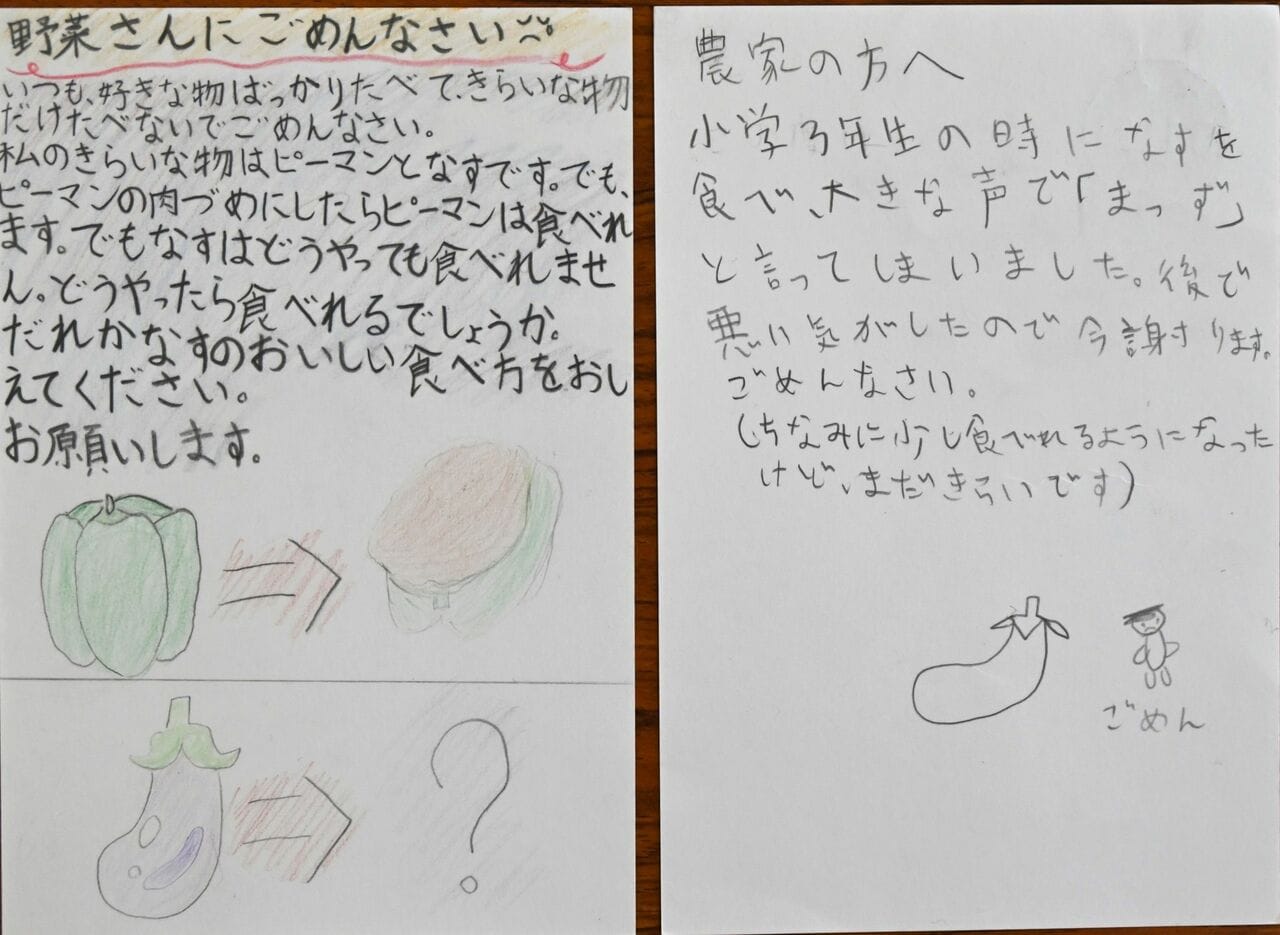 野菜さんにごめんなさい
いつも、好きな物ばっかりたべて、きらいな物
だけたべないでごめんなさい。
私のきらいな物はピーマンとなすです。でも、
ピーマンの肉づめにしたらピーマンは食べれ
ます。でもなすはどうやっても食べれませ
ん。どうやったら食べれるでしょうか。
だれかなすのおいしい食べ方をおし
えてください。
お願いします。
?
農家の方へ
小学3年生の時になすを
食べ、大きな声で「まっず」
と言ってしまいました。後で
悪い気がしたので今謝ります。
ごめんなさい。
(ちなみに少し食べれるようになった
けど、まだきらいです)
ごめん